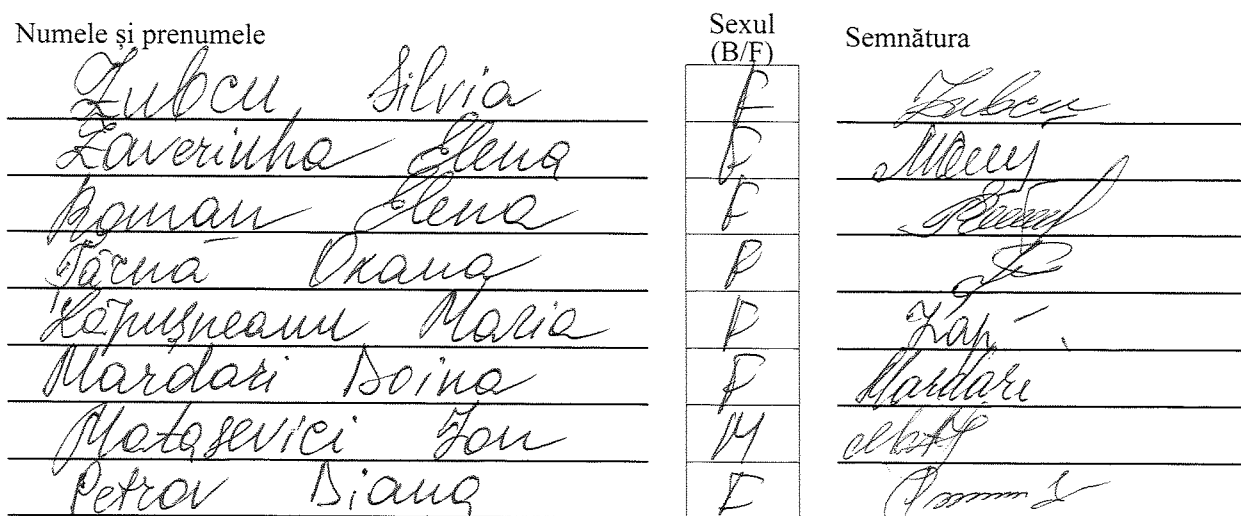 Numele și prenumele Sexul (B/F) Semnătura
Zubcu Silvia F Zubcu
Zaveriuha Elena F
Roman Elena F
Țărnă Oxana F
Lăpușneanu Maria F Lăp
Mardari Doina F Mardari
Matasevici Ion M
Petrov Diana F